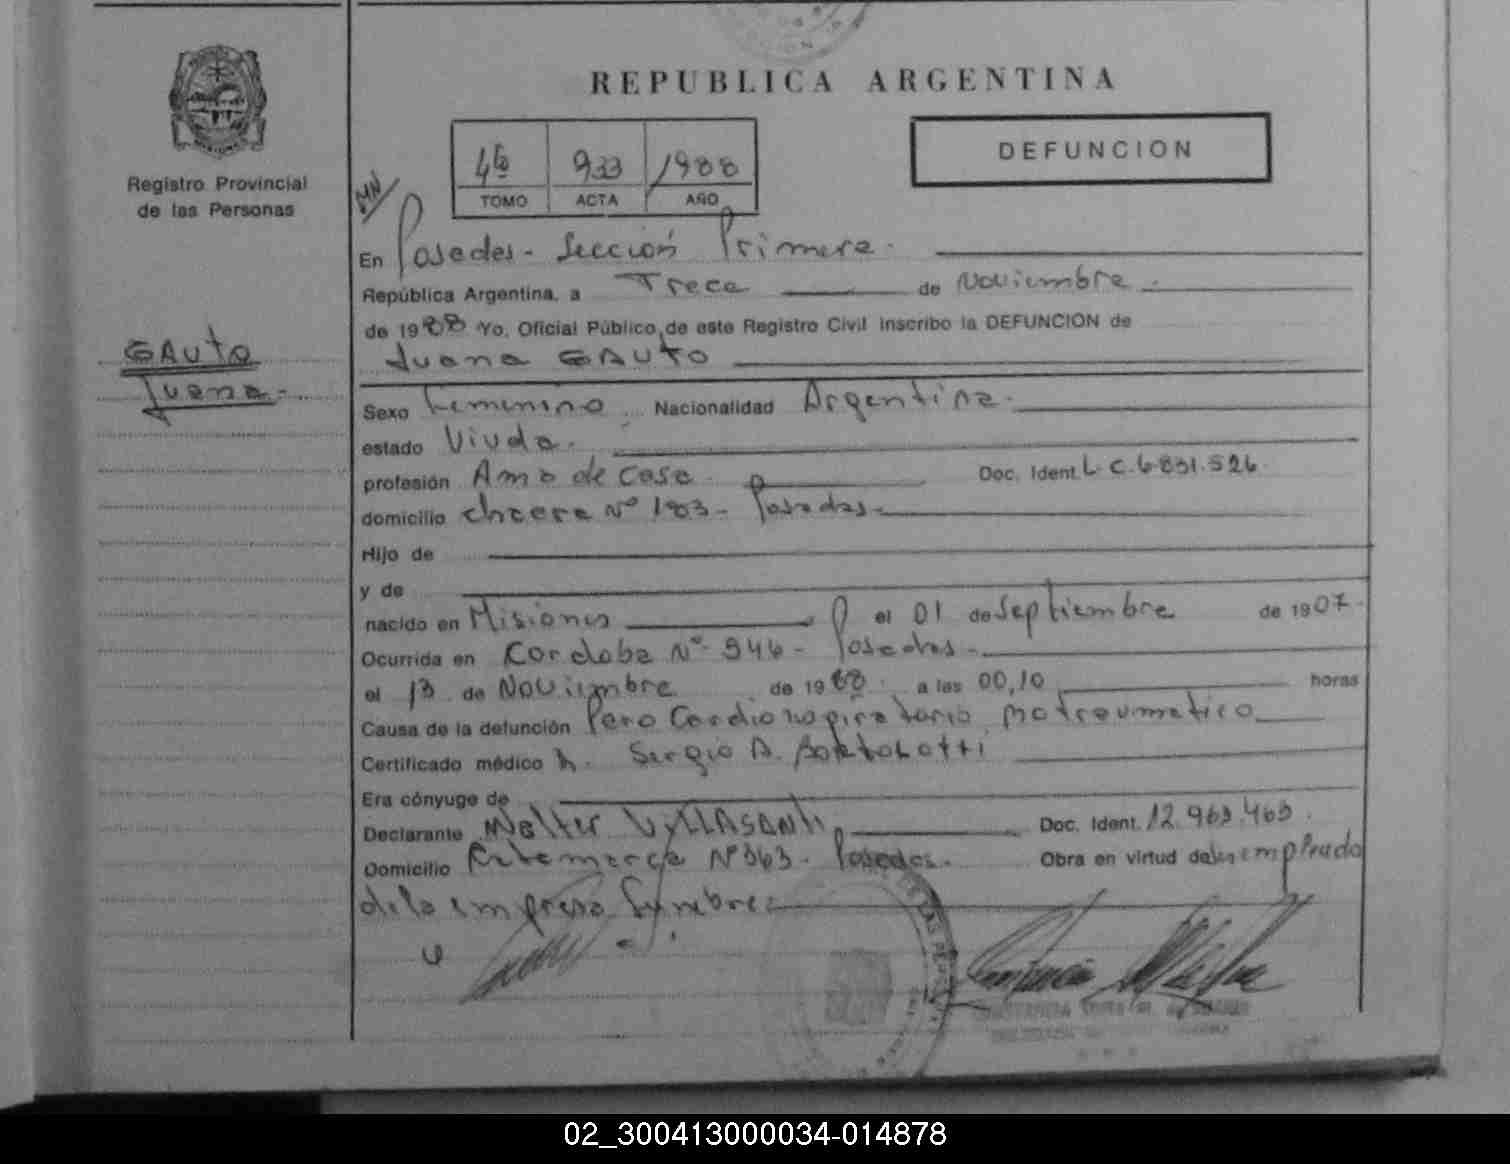 REPUBLICA ARGENTINA
DEFUNCION
Registro Provincial
de las Personas
4to 933 1988
TOMO ACTA AÑO
En Posadas - Sección Primera.
República Argentina, a Trece de Noviembre.
de 1988 Yo, Oficial Público de este Registro Civil inscribo la DEFUNCION de
Juana GAUTO
GAUTO
Juana.
Sexo Femenino Nacionalidad Argentina.
estado Viuda.
profesión Ama de Casa. Doc. Ident. L.C. 6.831.526.
domicilio chacra Nº 183 - Posadas.
Hijo de
y de
nacido en Misiones el 01 de Septiembre de 1907.
Ocurrida en Cordoba Nº 946 - Posadas.
el 13 de Noviembre de 1988. a las 00,10 horas
Causa de la defunción Paro Cardiorespiratorio
Certificado médico Sergio A. BORTOLOTTI
Era cónyuge de
Declarante Walter VILLASANTI Doc. Ident. 12.963.463.
Domicilio Nº 363 - Posadas. Obra en virtud de empleado
de la empresa Funebre.
02_300413000034-014878